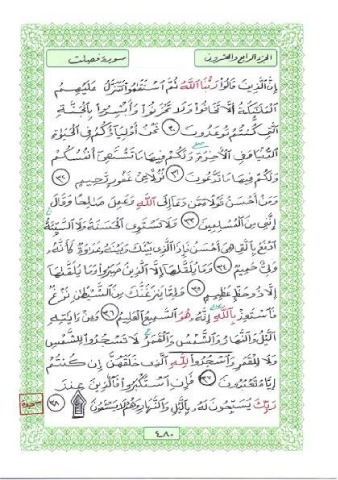 الجزء الرابع والعشرون
سورة فصلت
إن الذين قالوا ربنا الله ثم استقموا تتنزل عليهم
الملئكة ألا تخافوا ولا تحزنوا وأبشروا بالجنة
التي كنتم توعدون ٣٠ نحن أولياؤكم في الحيوة
الدنيا وفي الآخرة ولكم فيها ما تشتهي أنفسكم
ولكم فيها ما تدعون ٣١ نزلا من غفور رحيم ٣٢
ومن أحسن قولا ممن دعا إلى الله وعمل صلحا وقال
إنني من المسلمين ٣٣ ولا تستوي الحسنة ولا السيئة
ادفع بالتي هي أحسن فإذا الذي بينك وبينه عدوة كأنه
ولي حميم ٣٤ وما يلقىها إلا الذين صبروا وما يلقىها
إلا ذو حظ عظيم ٣٥ وإما ينزغنك من الشيطن نزغ
فاستعذ بالله إنه هو السميع العليم ٣٦ ومن ءايته
اليل والنهار والشمس والقمر لا تسجدوا للشمس
ولا للقمر واسجدوا لله الذي خلقهن إن كنتم
إياه تعبدون ٣٧ فإن استكبروا فالذين عند
ربك يسبحون له باليل والنهار وهم لا يسئمون ٣٨
سجدة
٤٨٠